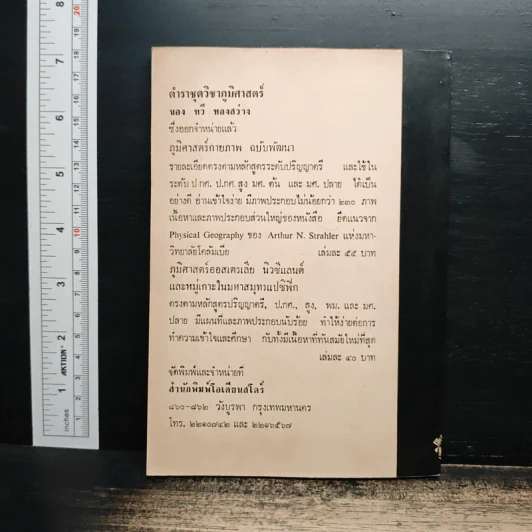 ตำราชุดวิชาภูมิศาสตร์
ของ ทวี ทองสว่าง
ซึ่งออกจำหน่ายแล้ว
ภูมิศาสตร์กายภาพ ฉบับพัฒนา
รายละเอียดตรงตามหลักสูตรระดับปริญญาตรี และใช้ใน
ระดับ ป กศ. ป.กศ สูง มศ. ต้น และ มศ. ปลาย ได้เป็น
อย่างดี อ่านเข้าใจง่าย มีภาพประกอบไม่น้อยกว่า ๒๓๐ ภาพ
เนื้อหาและภาพประกอบส่วนใหญ่ของหนังสือ ยึดแนวจาก
Physical Geography ของ Arthur N. Strahler แห่งมหา-
วิทยาลัยโคลัมเบีย เล่มละ ๕๕ บาท
ภูมิศาสตร์ออสเตรเลีย นิวซีแลนด์
และหมู่เกาะในมหาสมุทรแปซิฟิก
ตรงตามหลักสูตรปริญญาตรี, ป.กศ., สูง, พม. และ มศ.
ปลาย มีแผนที่และภาพประกอบนับร้อย ทำให้ง่ายต่อการ
ทำความเข้าใจและศึกษา กับทั้งมีเนื้อหาที่ทันสมัยใหม่ที่สุด
เล่มละ ๔๐ บาท
จัดพิมพ์และจำหน่ายที่
สำนักพิมพ์โอเดียนสโตร์
๘๖๐-๘๖๒ วังบูรพา กรุงเทพมหานคร
โทร. ๒๒๑๐๗๔๒ และ ๒๒๑๖๕๖๗